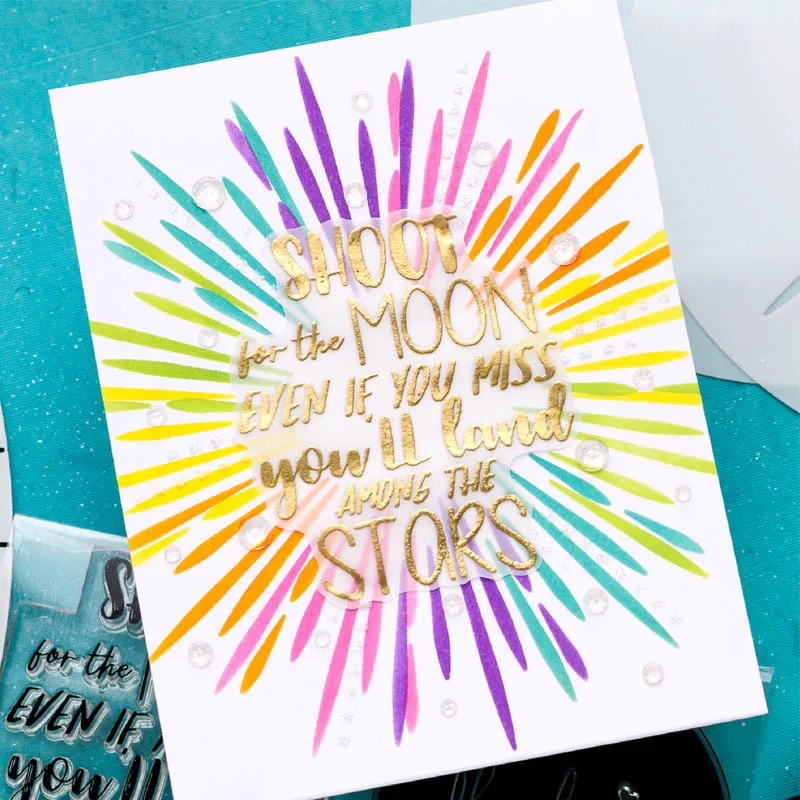 SHOOT
for the MOON
EVEN IF, YOU MISS
you'LL land
AMONG THE
STARS
for the
EVEN IF,
you'LL